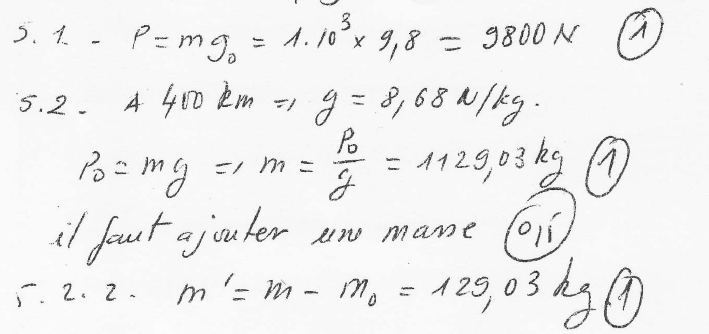 5.1. - P = mg₀ = 1.10³ x 9,8 = 9800 N (1)
5.2. A 400 km => g = 8,68 N/kg.
P₀ = mg => m = P₀/g = 1129,03 kg (1)
il faut ajouter une masse (0,5)
5.2.2. m' = m - m₀ = 129,03 kg (1)